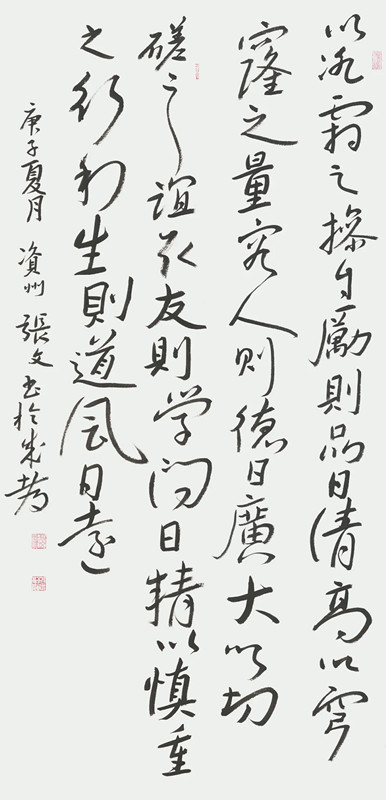 以冰霜之操自勵則品日清高以穹
窿之量容人则德日廣大以切
磋之誼取友則学问日精以慎重
之行利生則道风日遠
庚子夏月 資州 張文书於成都